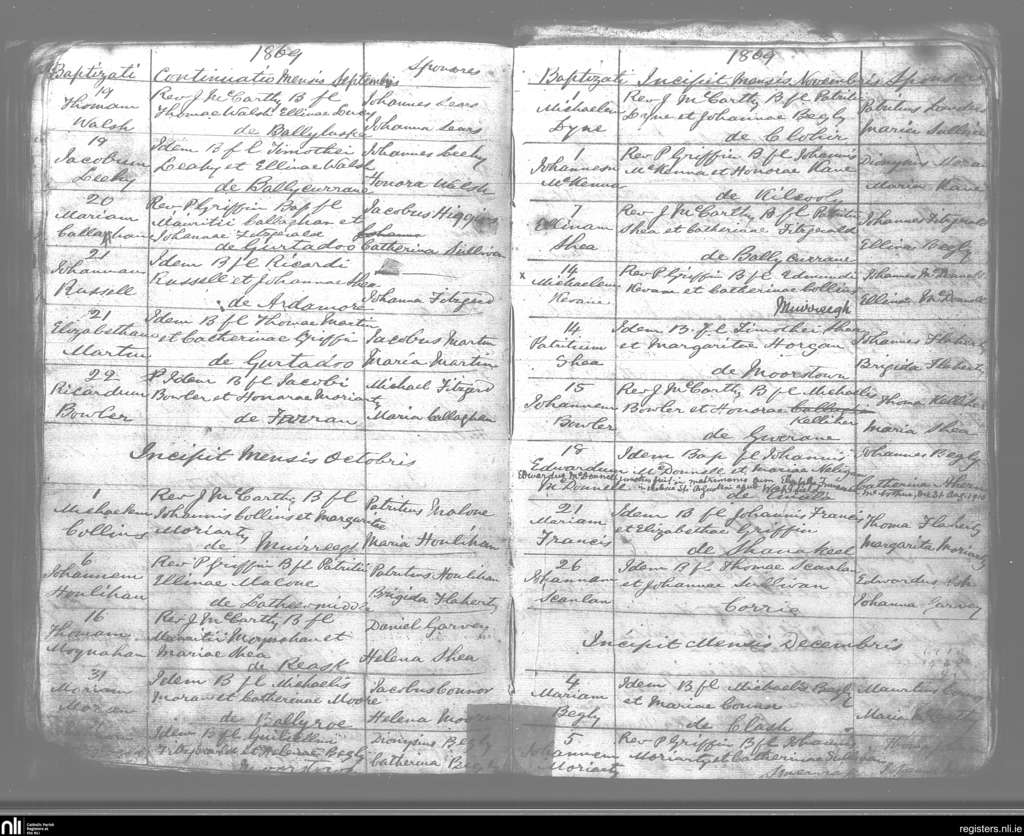 1869
Baptizati Continuatio Mensis Septembris Sponsores
19 Rev J McCarthy B f l Johannes Lears
Thomam Thomae Walsh Ellinae Lucey
Walsh de Johanna Lears
19 Idem B f l Timothei Johannes Leehy
Jacobum Leahy et Ellinae Walsh
Leehy de Ballycurrane Honora Walsh
20 Rev P Griffin Bap f l Jacobus Higgins
Mariam Mauritii Callaghan et
Callaghane Johannae Fitzgerald
de Gurtadoo Catherina Sullivan
21 Idem B f l Ricardi
Johannam Russell et Johannae Shea
Russell de Ardamore Johanna Fitzgerd
21 Idem B f l Thomae Martin
Elizabetham et Catherinae Griffin Jacobus Martin
Martin de Gurtadoo Maria Martin
29 Idem B f l Jacobi Michael Fitzgerd
Ricardum Bowler et Honorae Moriarty
Bowler de Farran Maria Callaghan
Incipit Mensis Octobris
1 Rev J McCarthy B f l
Michaelem Johannis Collins et Margaritae Patritus Malone
Collins Moriarty
de Muirreagh Maria Houlihan
6 Rev P Griffin B f l Patritii Patritus Houlihan
Johannem Ellinae Malone
Houlihan de Brigida Flaherty
16 Rev J McCarthy B f l Daniel Garvey
Thomam Mauritii Moynahan et
Moynahan Mariae Shea
de Reask Helena Shea
31 Idem B f l Michaelis Jacobus Connor
Mariam Moran et Catherinae Moore
Moran de Ballyroe Helena Moore
Idem B f l Dionysius Begly
et Begly Catherina Begly
1869
Baptizati Incipit Mensis Novembris Sponsores
1 Rev J McCarthy B f l Patritii Patritus
Michaelem Lyne et Johannae Begly
Lyne de Maria Sullivan
1 Rev P Griffin B f l Johannis Dionysius Moran
Johannem McKenna et Honorae Kane
McKenna de Kilcooly Maria Kane
7 Rev J McCarthy B f l Patritii Johannes Fitzgerald
Ellinam Shea et Catherinae Fitzgerald
Shea de Ballycurrane Ellina Begly
x 14 Rev P Griffin B f l Edmundi Johannes McDonnell
Michaelem Kevane et Catherinae Collins
Kevane Muirreagh Ellina McDonnell
14 Idem B f l Timothei Shea Johannes Flaherty
Patritium et Margaritae Horgan
Shea de Moorstown Brigida Flaherty
15 Rev J McCarthy B f l Michaelis Thoma Kelliher
Johannem Bowler et Honorae Callaghan
Bowler Kelliher
de Gwerane Maria Shea
18 Idem Bap f l Johannis Johannes Begly
Edwardum McDonnell et Mariae
Edwardus McDonnell junctus fuit in matrimonio cum
McDonnell Catherina
21 Idem B f l Johannis Francis Thoma Flaherty
Mariam et Elizabethae Griffin
Francis de Shanakeel Margarita Moriarty
26 Idem B f Thomae Scanlan Edwardus
Johannam et Johannae Sullivan
Scanlan Corrie Johanna Garvey
Incipit Mensis Decembris
4 Idem B f l Michaelis Begly Mauritus
Mariam et Mariae Connor
Begly de Clash Maria
5 Rev P Griffin B f l Johannis
Johannem Moriarty et Catherinae Sullivan
Moriarty
nli
Catholic Parish
Registers at
the NLI
registers.nli.ie